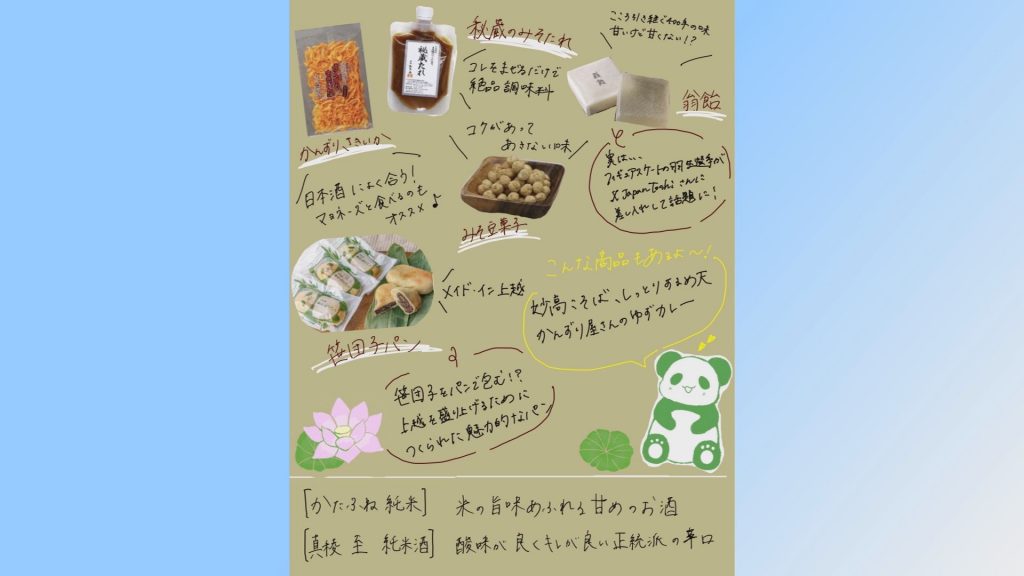 秘蔵のみそたれ
コレをまぜるだけで
絶品調味料
秘蔵たれ
こころ引き継ぐ400年の味
甘いけど甘くない!?
翁飴
実は…
フィギュアスケートの羽生選手が
X Japan Toshi さんに
差し入れして話題に!
かんずりさきいか
日本酒によく合う!
マヨネーズと食べるのも
オススメ♪
コクがあって
あきない味
みそ豆菓子
メイド・イン上越
笹団子パン
笹団子をパンで包む!?
上越を盛り上げるために
つくられた魅力的なパン
こんな商品もあるよ〜!
妙高こそば、しっとりするめ天
かんずり屋さんのゆずカレー
[かたふね 純米] 米の旨味あふれる甘めのお酒
[真稜 至 純米酒] 酸味が良くキレが良い正統派の辛口